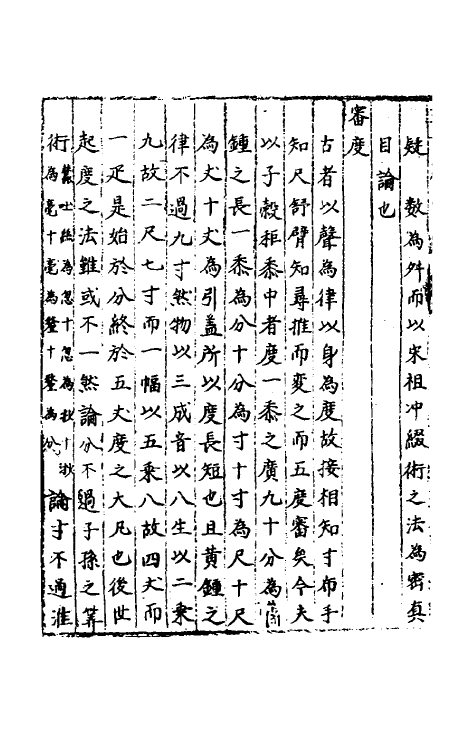 疑　數為舛而以宋祖冲綴術之法為密真
目論也
審度
古者以聲為律以身為度故接相知寸布手
知尺舒臂知尋推而變之而五度審矣今夫
以子穀秬黍中者度一黍之廣九十分為黃
鍾之長一黍為分十分為寸十寸為尺十尺
為丈十丈為引盖所以度長短也且黃鍾之
律不過九寸然物以三成音以八生以二乘
九故二尺七寸而一幅以五乘八故四丈而
一疋是始於分終於五丈度之大凡也後世
起度之法雖或不一然論分不過子孫之筭
術蠶吐絲為忽十忽為秒十秒為毫十毫為釐十釐為分論寸不過淮